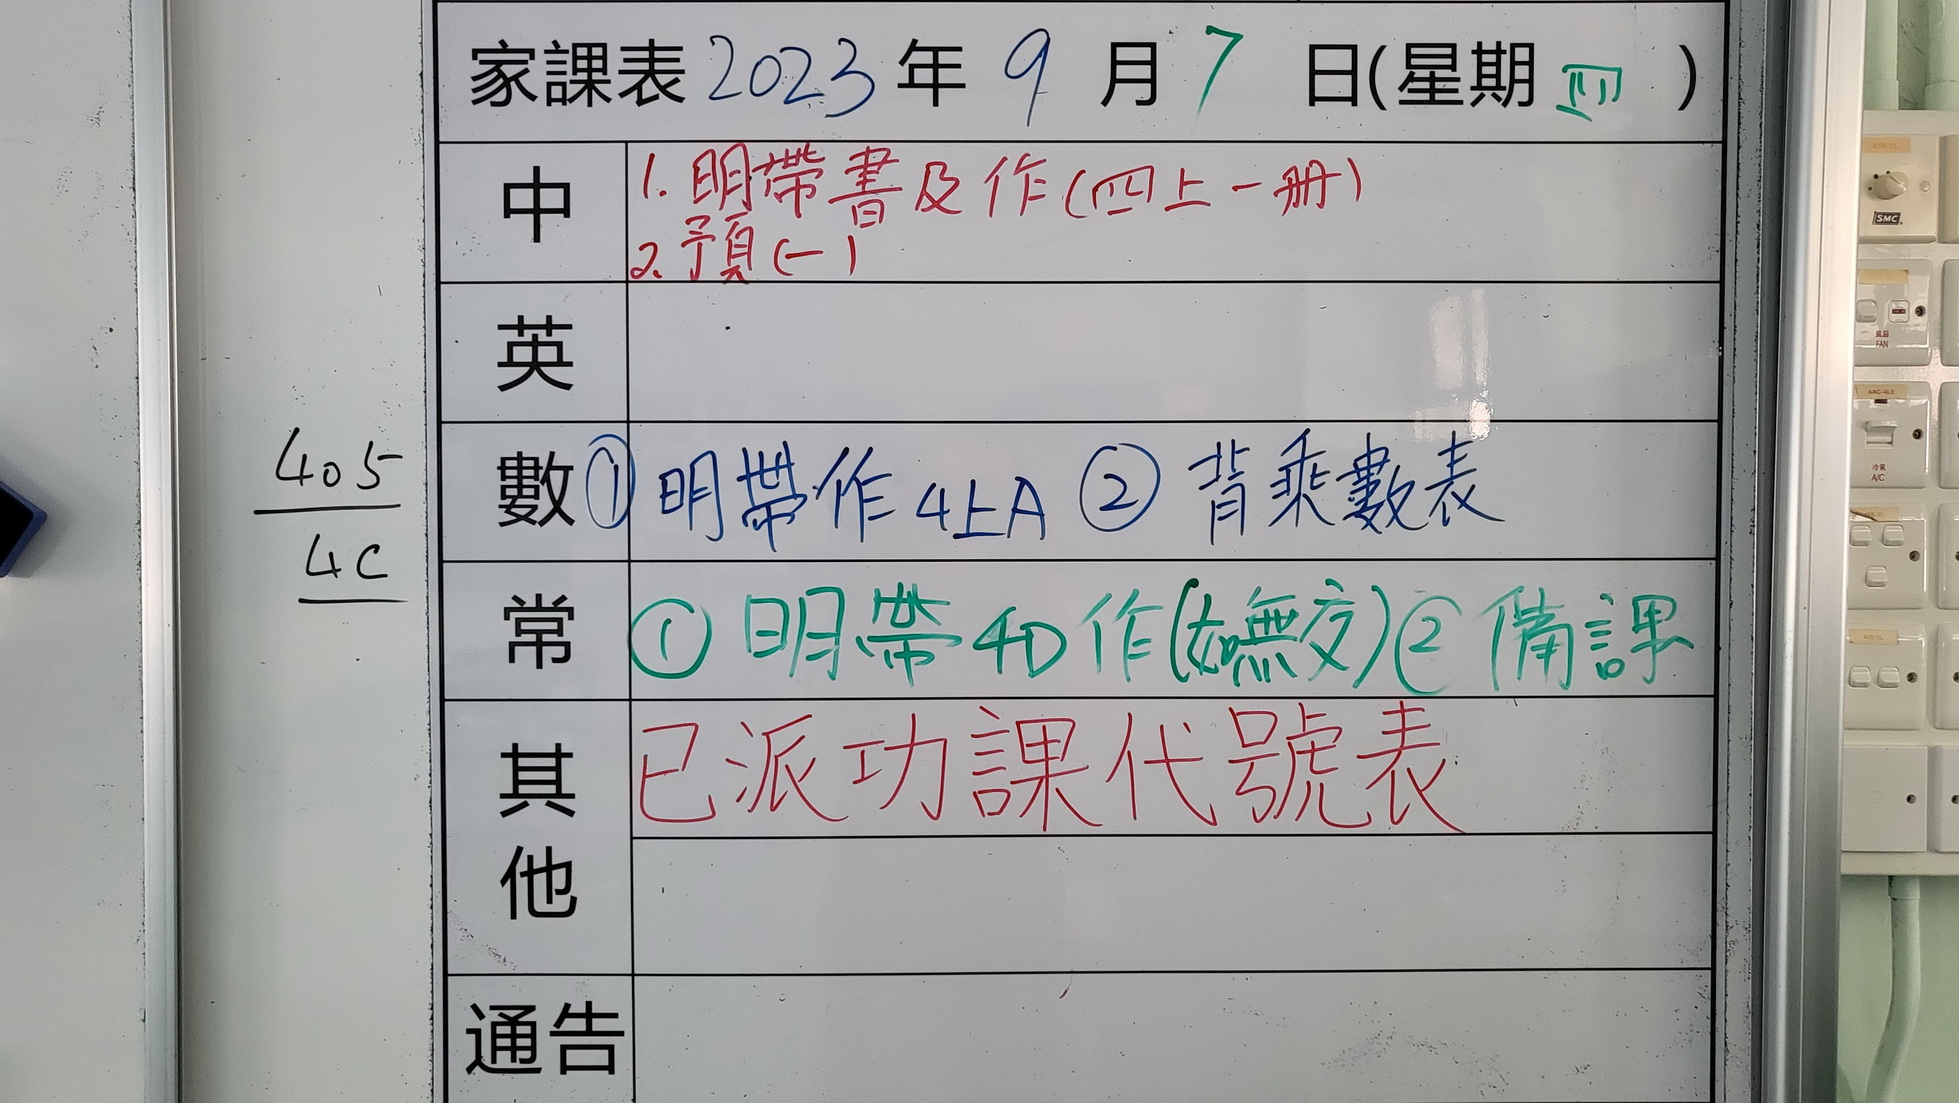 家課表 2023 年 9 月 7 日(星期 四 )
中 1. 明帶書及作(四上一冊)
2. 預(一)
英
405
4C
數 ① 明帶作4上A ② 背乘數表
常 ① 明帶4D作(如無交) ② 備課
其他 已派功課代號表
通告
SMC
風扇
FAN
冷氣
A/C